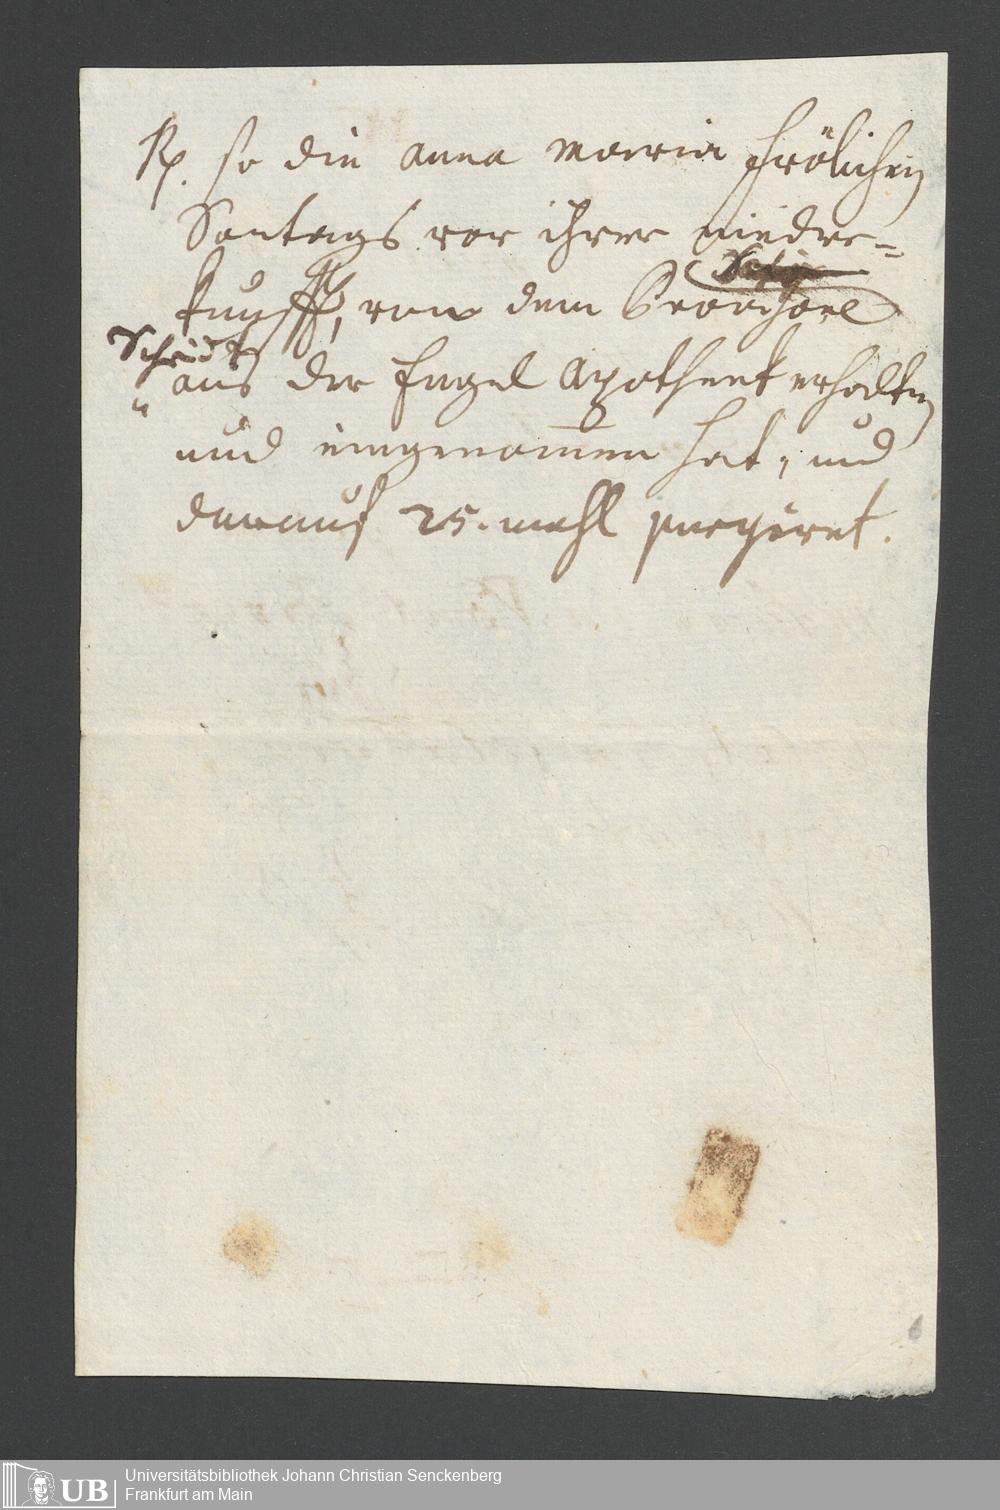 Rp. so die anna Maria Frölichen
Sontags vor ihrer nieder=
kunfft, von dem
Scheidt
aus der Engel Apotheek erhalten
und eingenommen hat, und
darauf 25. mahl purgiret.
UB
Universitätsbibliothek Johann Christian Senckenberg
Frankfurt am Main